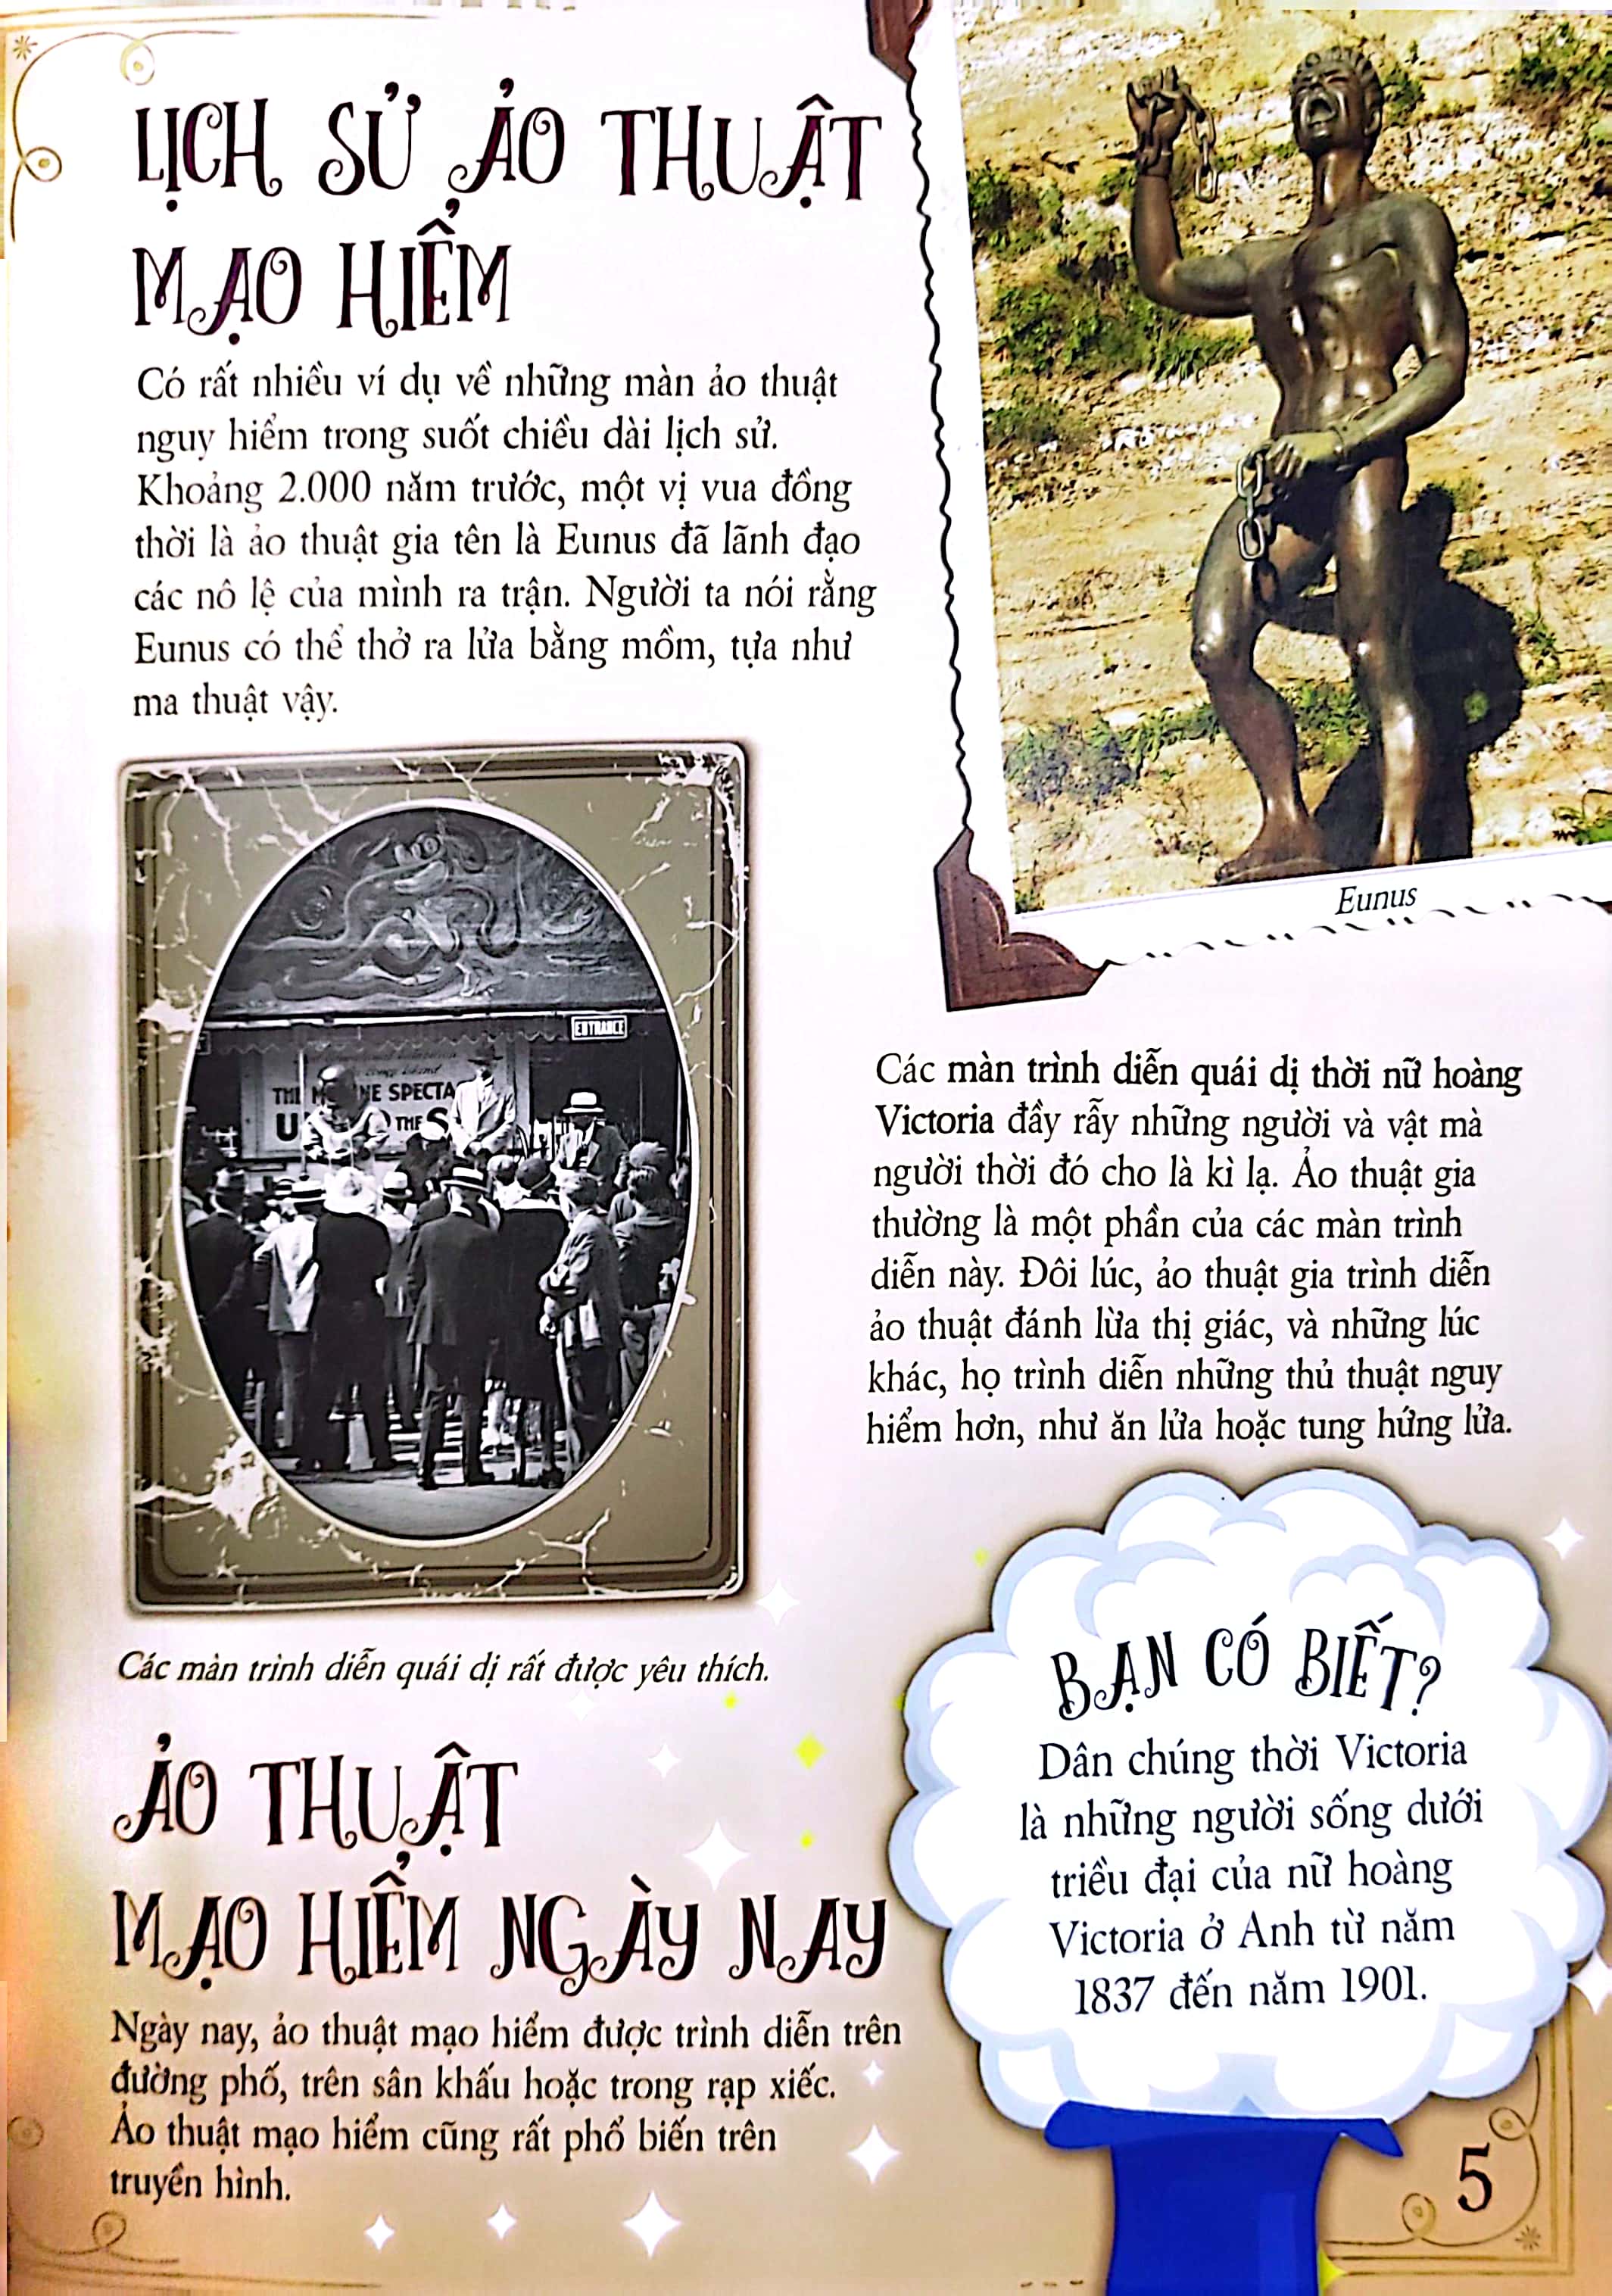 LỊCH SỬ ẢO THUẬT
MẠO HIỂM
Có rất nhiều ví dụ về những màn ảo thuật
nguy hiểm trong suốt chiều dài lịch sử.
Khoảng 2.000 năm trước, một vị vua đồng
thời là ảo thuật gia tên là Eunus đã lãnh đạo
các nô lệ của mình ra trận. Người ta nói rằng
Eunus có thể thở ra lửa bằng mồm, tựa như
ma thuật vậy.
Eunus
ENTRANCE
SPECTA
THE S
Các màn trình diễn quái dị rất được yêu thích.
Các màn trình diễn quái dị thời nữ hoàng
Victoria đầy rẫy những người và vật mà
người thời đó cho là kì lạ. Ảo thuật gia
thường là một phần của các màn trình
diễn này. Đôi lúc, ảo thuật gia trình diễn
ảo thuật đánh lừa thị giác, và những lúc
khác, họ trình diễn những thủ thuật nguy
hiểm hơn, như ăn lửa hoặc tung hứng lửa.
BẠN CÓ BIẾT?
Dân chúng thời Victoria
là những người sống dưới
triều đại của nữ hoàng
Victoria ở Anh từ năm
1837 đến năm 1901.
ẢO THUẬT
MẠO HIỂM NGÀY NAY
Ngày nay, ảo thuật mạo hiểm được trình diễn trên
đường phố, trên sân khấu hoặc trong rạp xiếc.
Ảo thuật mạo hiểm cũng rất phổ biến trên
truyền hình.
5